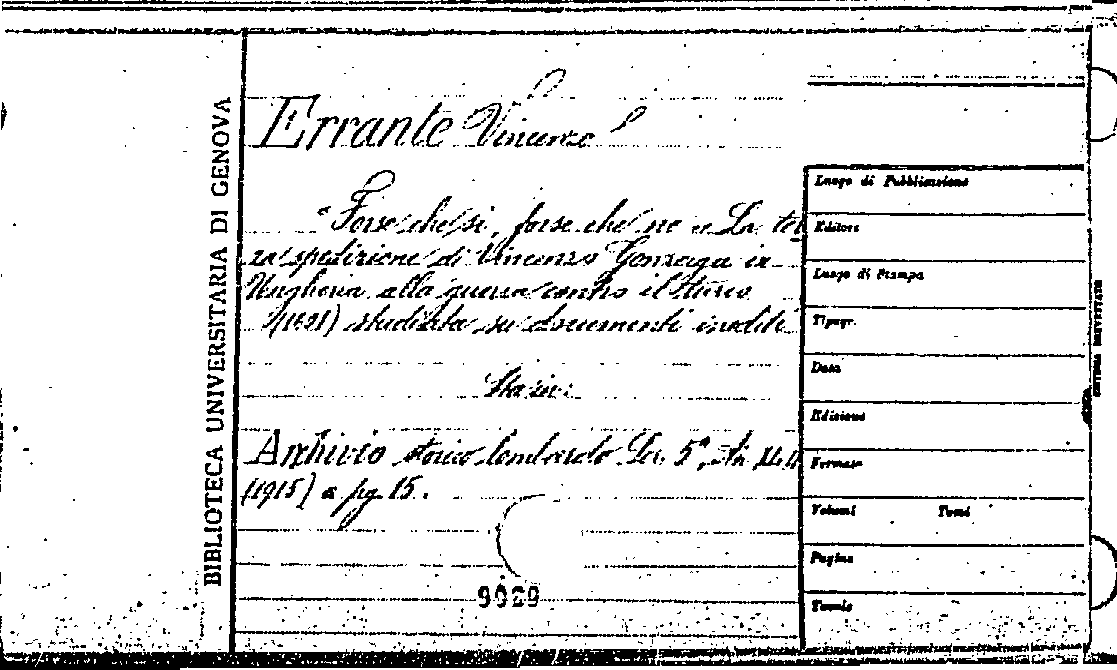 BIBLIOTECA UNIVERSITARIA DI GENOVA
Errante Vincenzo
"Forse che si, forse che no" La ter
za spedizione di Vincenzo Gonzaga in
Ungheria alla guerra contro il turco
studiata su documenti inediti
Sta in:
Archivio storico lombardo Ser. 5ª, An
(1915) a pg. 15.
9029
Luogo di Pubblicazione
Editore
Luogo di Stampa
Tipogr.
Data
Edizione
Formato
Volumi Tomi
Pagine
Tavole